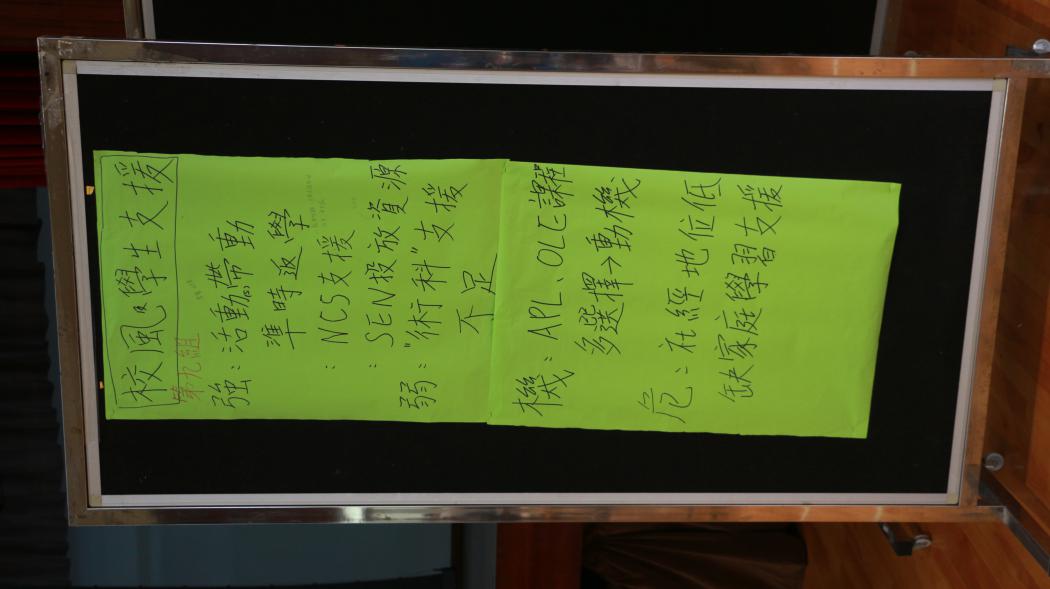 校風及學生支援
第九組
強：活動帶動
準時返學
：NCS支援
：SEN投放資源
弱："術科"支援
不足
機：APL、OLE課程
多選擇→動機
危：社經地位低
缺家庭學習支援